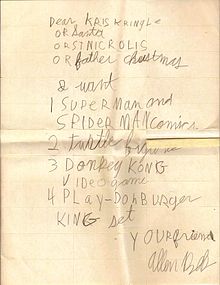 Dear KRIS KRINGLE
OR Santa
OR STNICROLIS
OR father chistmas
I want
1 SUPERMAN and
SPIDER MAN comics
2 turtle
3 DONKEY KONG
VIDEO game
4 PLAY-DOH BURGER
KING set
YOUR friend
Allen